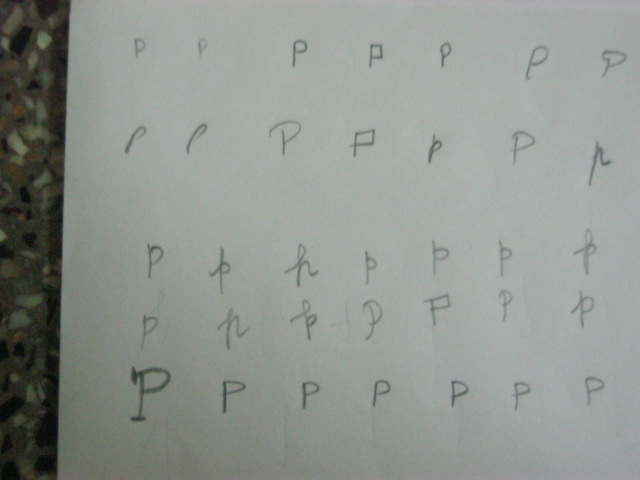 P P P P P P P
P P P P p P p
p p p p p p p
p p p P P P p
P P P P P P P